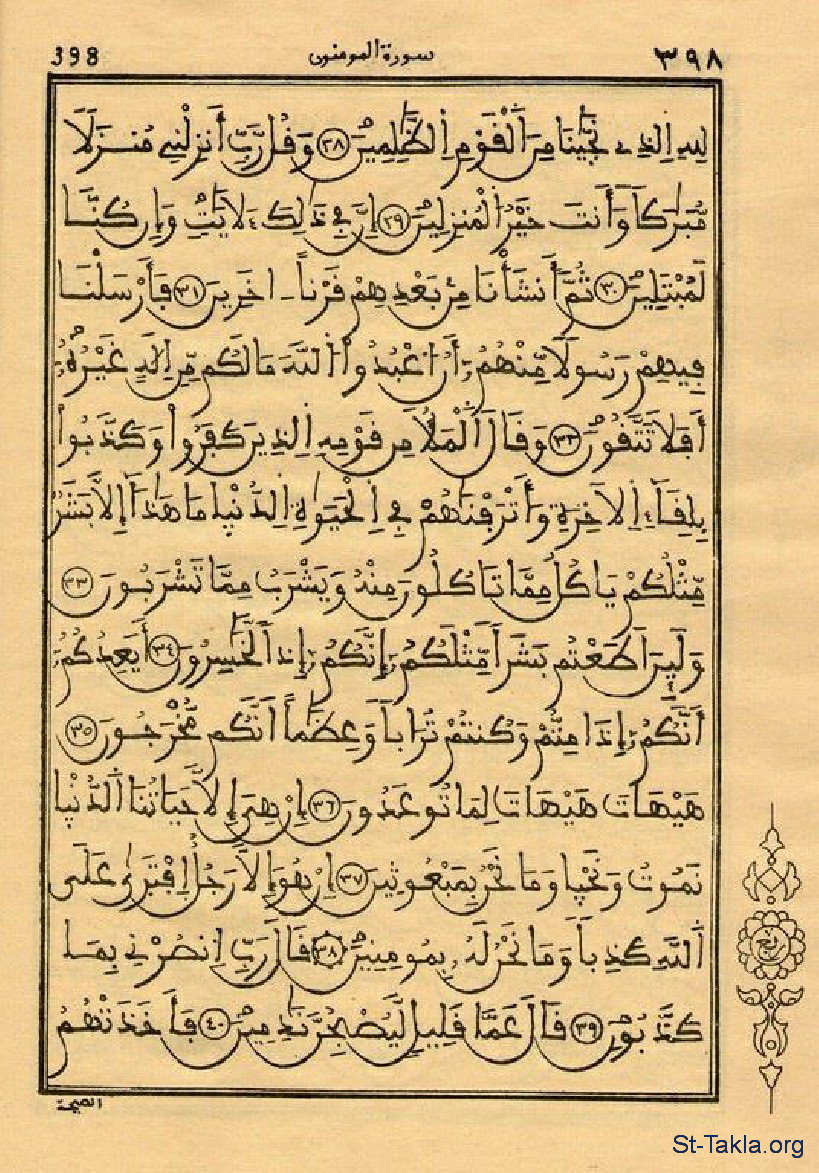 398 سورة المومنون ٣٩٨
لِلهِ اِلذِے نَجَّيٰنَا مِنَ اَ۬لْقَوْمِ اِ۬لظَّٰلِمِينَ ٢٨ وَقُل رَّبِّ أَنزِلْنِے مُنزَلاٗ
مُّبَٰرَكاٗ وَأَنتَ خَيْرُ اُ۬لْمُنزِلِينَ ٢٩ إِنَّ فِے ذَٰلِكَ ءَلَايَٰتٖ وَإِن كُنَّا
لَمُبْتَلِينَ ٣٠ ثُمَّ أَنشَأْنَا مِنۢ بَعْدِهِمْ قَرْناً ـ اخَرِينَ ٣١ فَأَرْسَلْنَا
فِيهِمْ رَسُولاٗ مِّنْهُمُۥٓ أَنُ اُ۟عْبُدُواْ اُ۬للَّهَ مَا لَكُم مِّنِ اِلَٰهٍ غَيْرُهُۥٓ
أَفَلَا تَتَّقُونَ ٣٢ وَقَالَ اَ۬لْمَلَأُ مِن قَوْمِهِ اِ۬لذِينَ كَفَرُواْ وَكَذَّبُواْ
بِلِقَآءِ اِ۬لَاخِرَةِ وَأَتْرَفْنَٰهُمْ فِے اِ۬لْحَيَوٰةِ اِ۬لدُّنْيَا مَا هَٰذَآ إِلَّا بَشَرٌ
مِّثْلُكُمْ يَاكُلُ مِمَّا تَاكُلُونَ مِنْهُ وَيَشْرَبُ مِمَّا تَشْرَبُونَ ٣٣
وَلَئِنَ اَطَعْتُم بَشَراٗ مِّثْلَكُمُۥٓ إِنَّكُمُۥٓ إِذاٗ لَّخَٰسِرُونَ ٣٤ أَيَعِدُكُمُۥٓ
أَنَّكُمُۥٓ إِذَا مِتُّمْ وَكُنتُمْ تُرَاباٗ وَعِظَٰماً اَنَّكُم مُّخْرَجُونَ ٣٥
هَيْهَاتَ هَيْهَاتَ لِمَا تُوعَدُونَ ٣٦ إِنْ هِيَ إِلَّا حَيَاتُنَا اَ۬لدُّنْيَا
نَمُوتُ وَنَحْيَا وَمَا نَحْنُ بِمَبْعُوثِينَ ٣٧ إِنْ هُوَ إِلَّا رَجُلٌ اِ۪فْتَرَىٰ عَلَى
اَ۬للَّهِ كَذِباٗ وَمَا نَحْنُ لَهُۥ بِمُومِنِينَ ٣٨ قَالَ رَبِّ اِ۟نصُرْنِے بِمَا
كَذَّبُونِ ٣٩ قَالَ عَمَّا قَلِيلٖ لَّيُصْبِحُنَّ نَٰدِمِينَ ٤٠ فَأَخَذَتْهُمُ
الصيحة
ربع
St-Takla.org